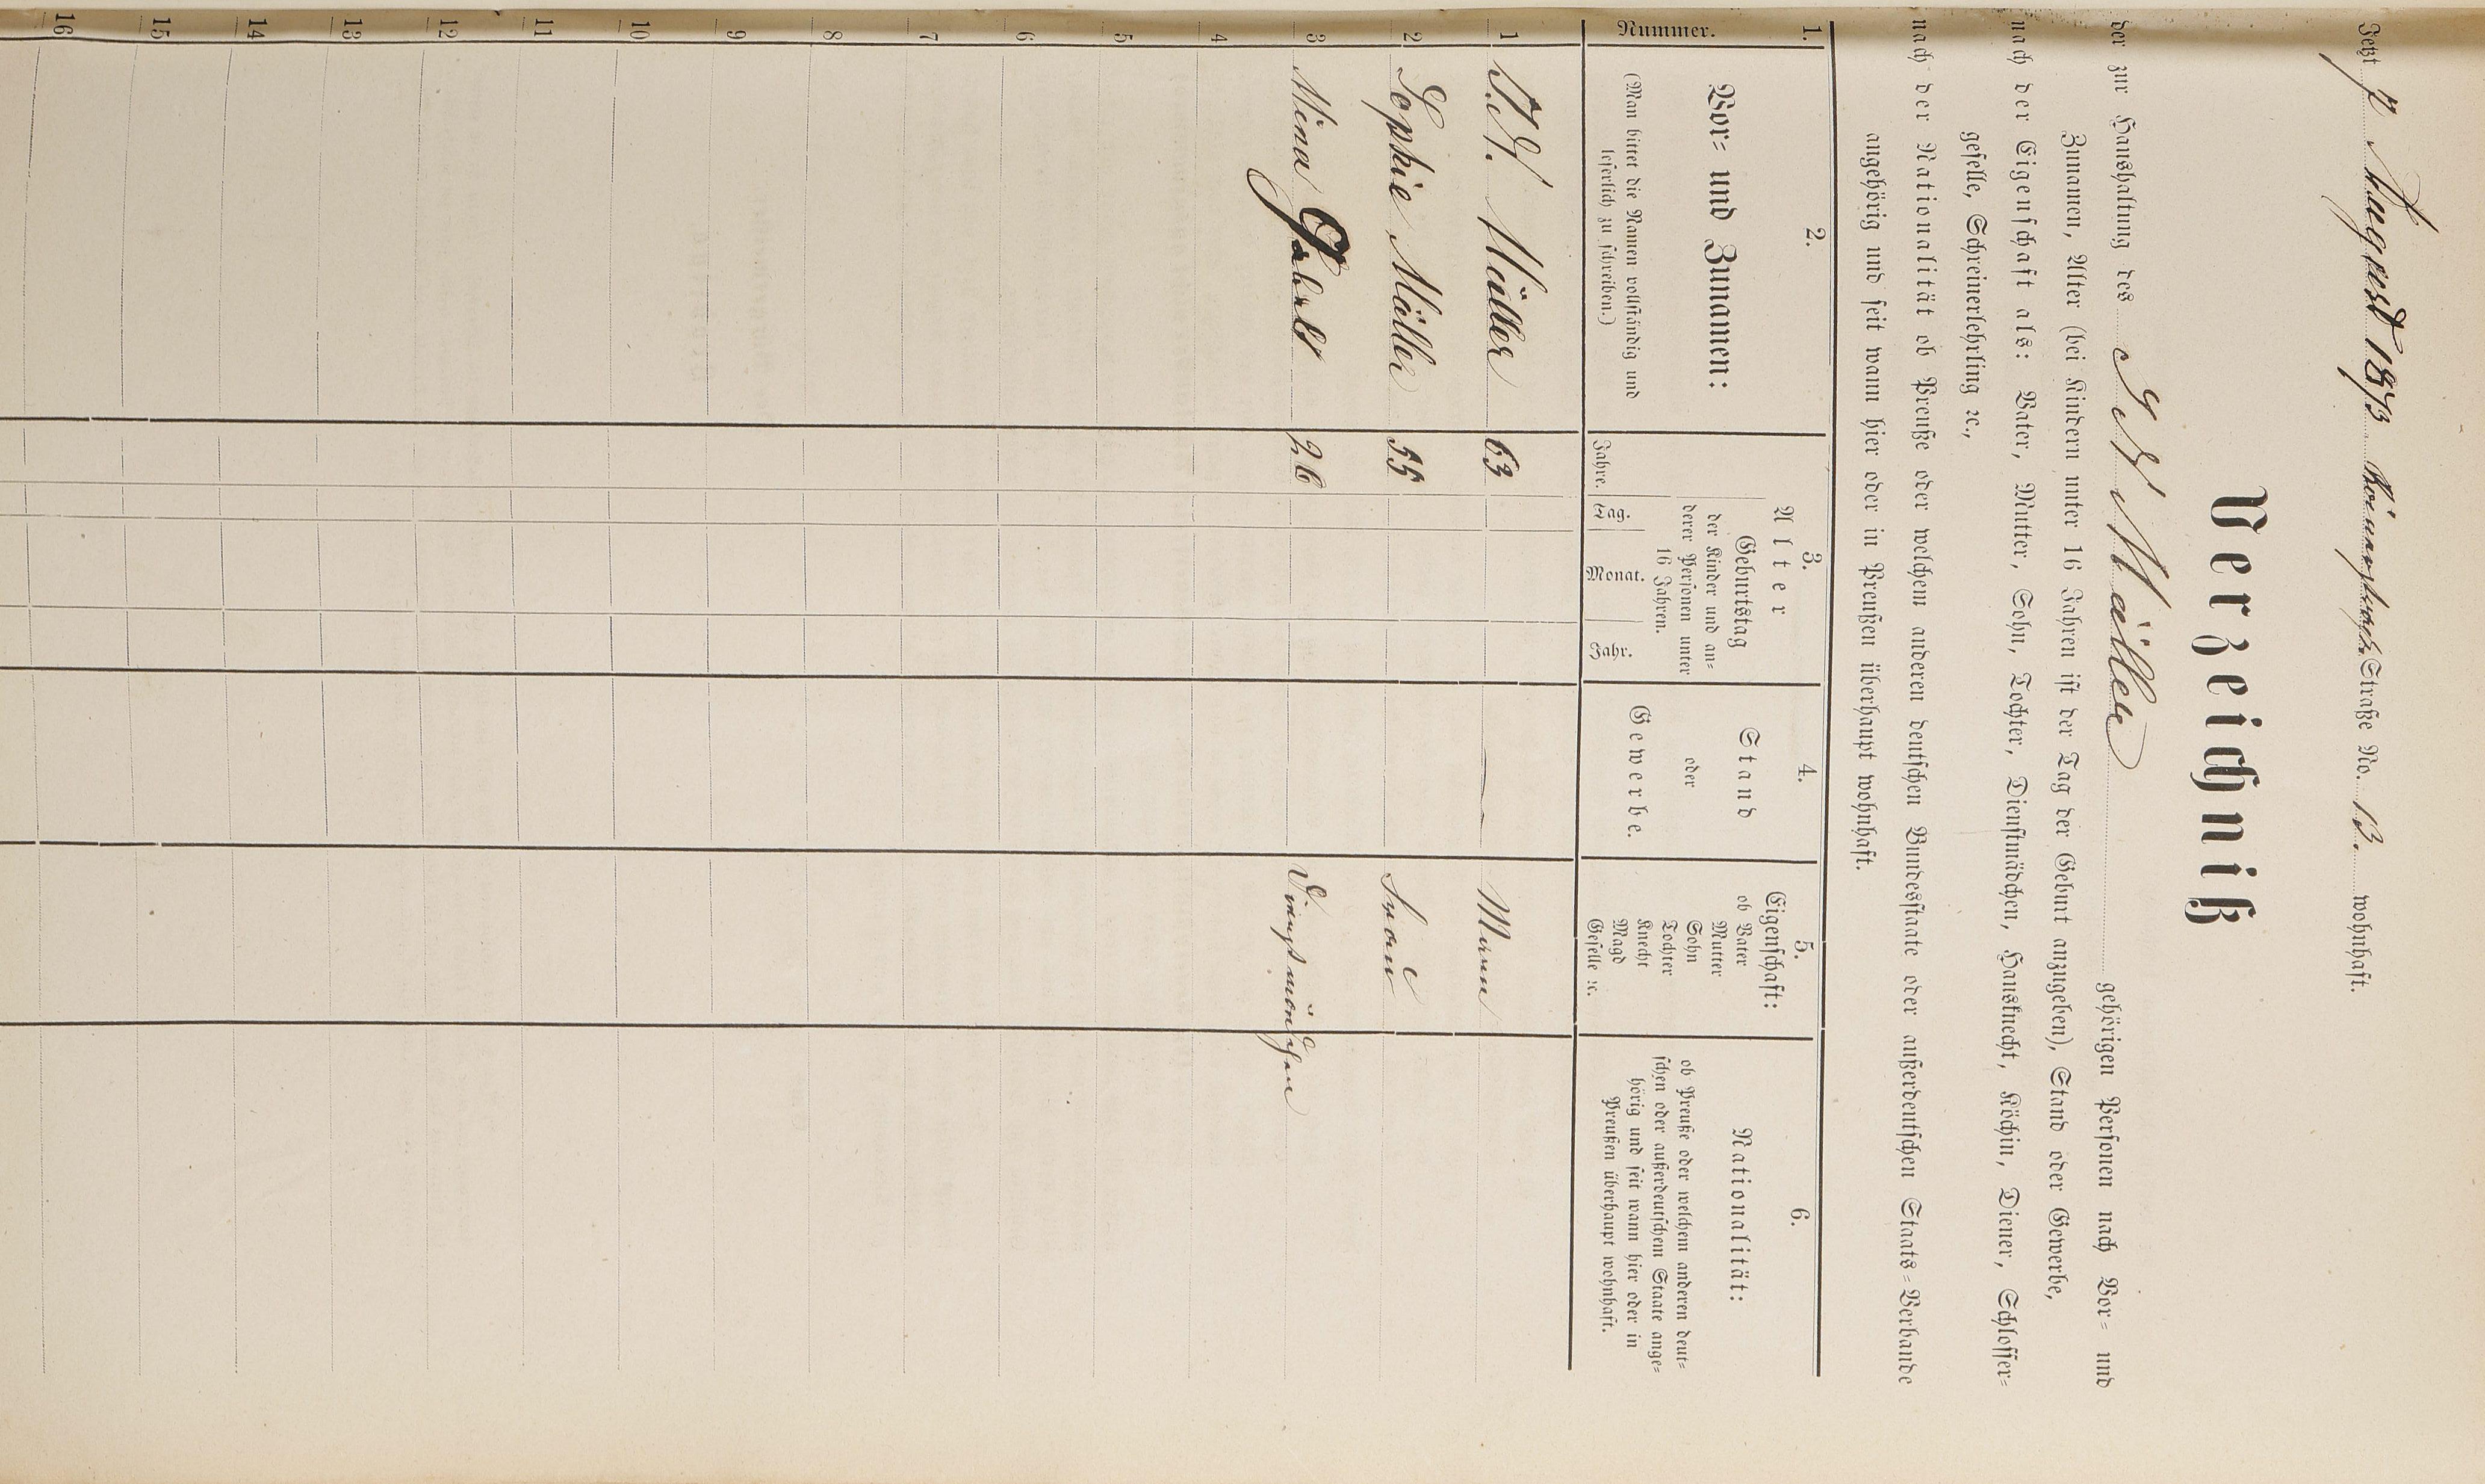 Jetzt 7 August 1873 Straße No. 13. wohnhaft.
Verzeichniß
der zur Haushaltung des Müller gehörigen Personen nach Vor- und
Zunamen, Alter (bei Kindern unter 16 Jahren ist der Tag der Geburt anzugeben), Stand oder Gewerbe,
nach der Eigenschaft als: Vater, Mutter, Sohn, Tochter, Dienstmädchen, Hausknecht, Köchin, Diener, Schlosser-
geselle, Schreinerlehrling ꝛc.,
nach der Nationalität ob Preuße oder welchem anderen deutschen Bundesstaate oder außerdeutschen Staats-Verbande
angehörig und seit wann hier oder in Preußen überhaupt wohnhaft.
1. 2. 3. 4. 5. 6.
Nummer.
Vor- und Zunamen:
(Man bittet die Namen vollständig und
leserlich zu schreiben.)
Alter
Jahre.
Geburtstag
der Kinder und an-
derer Personen unter
16 Jahren.
Tag. Monat. Jahr.
Stand
oder
Gewerbe.
Eigenschaft:
ob Vater
Mutter
Sohn
Tochter
Knecht
Magd
Geselle ꝛc.
Nationalität:
ob Preuße oder welchem anderen deut-
schen oder außerdeutschem Staate ange-
hörig und seit wann hier oder in
Preußen überhaupt wohnhaft.
1 Müller 63 — Mann
2 Sophie Müller 55 Frau
3 Mina 26 Dienstmädchen
4
5
6
7
8
9
10
11
12
13
14
15
16